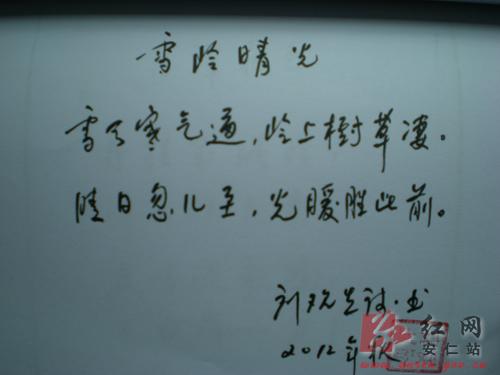 雪岭晴光
雪天寒气逼,岭上樹草凄。
晴日忽儿至,光暖胜此前。
刘 生诗·书
2012年秋
红网
安仁站